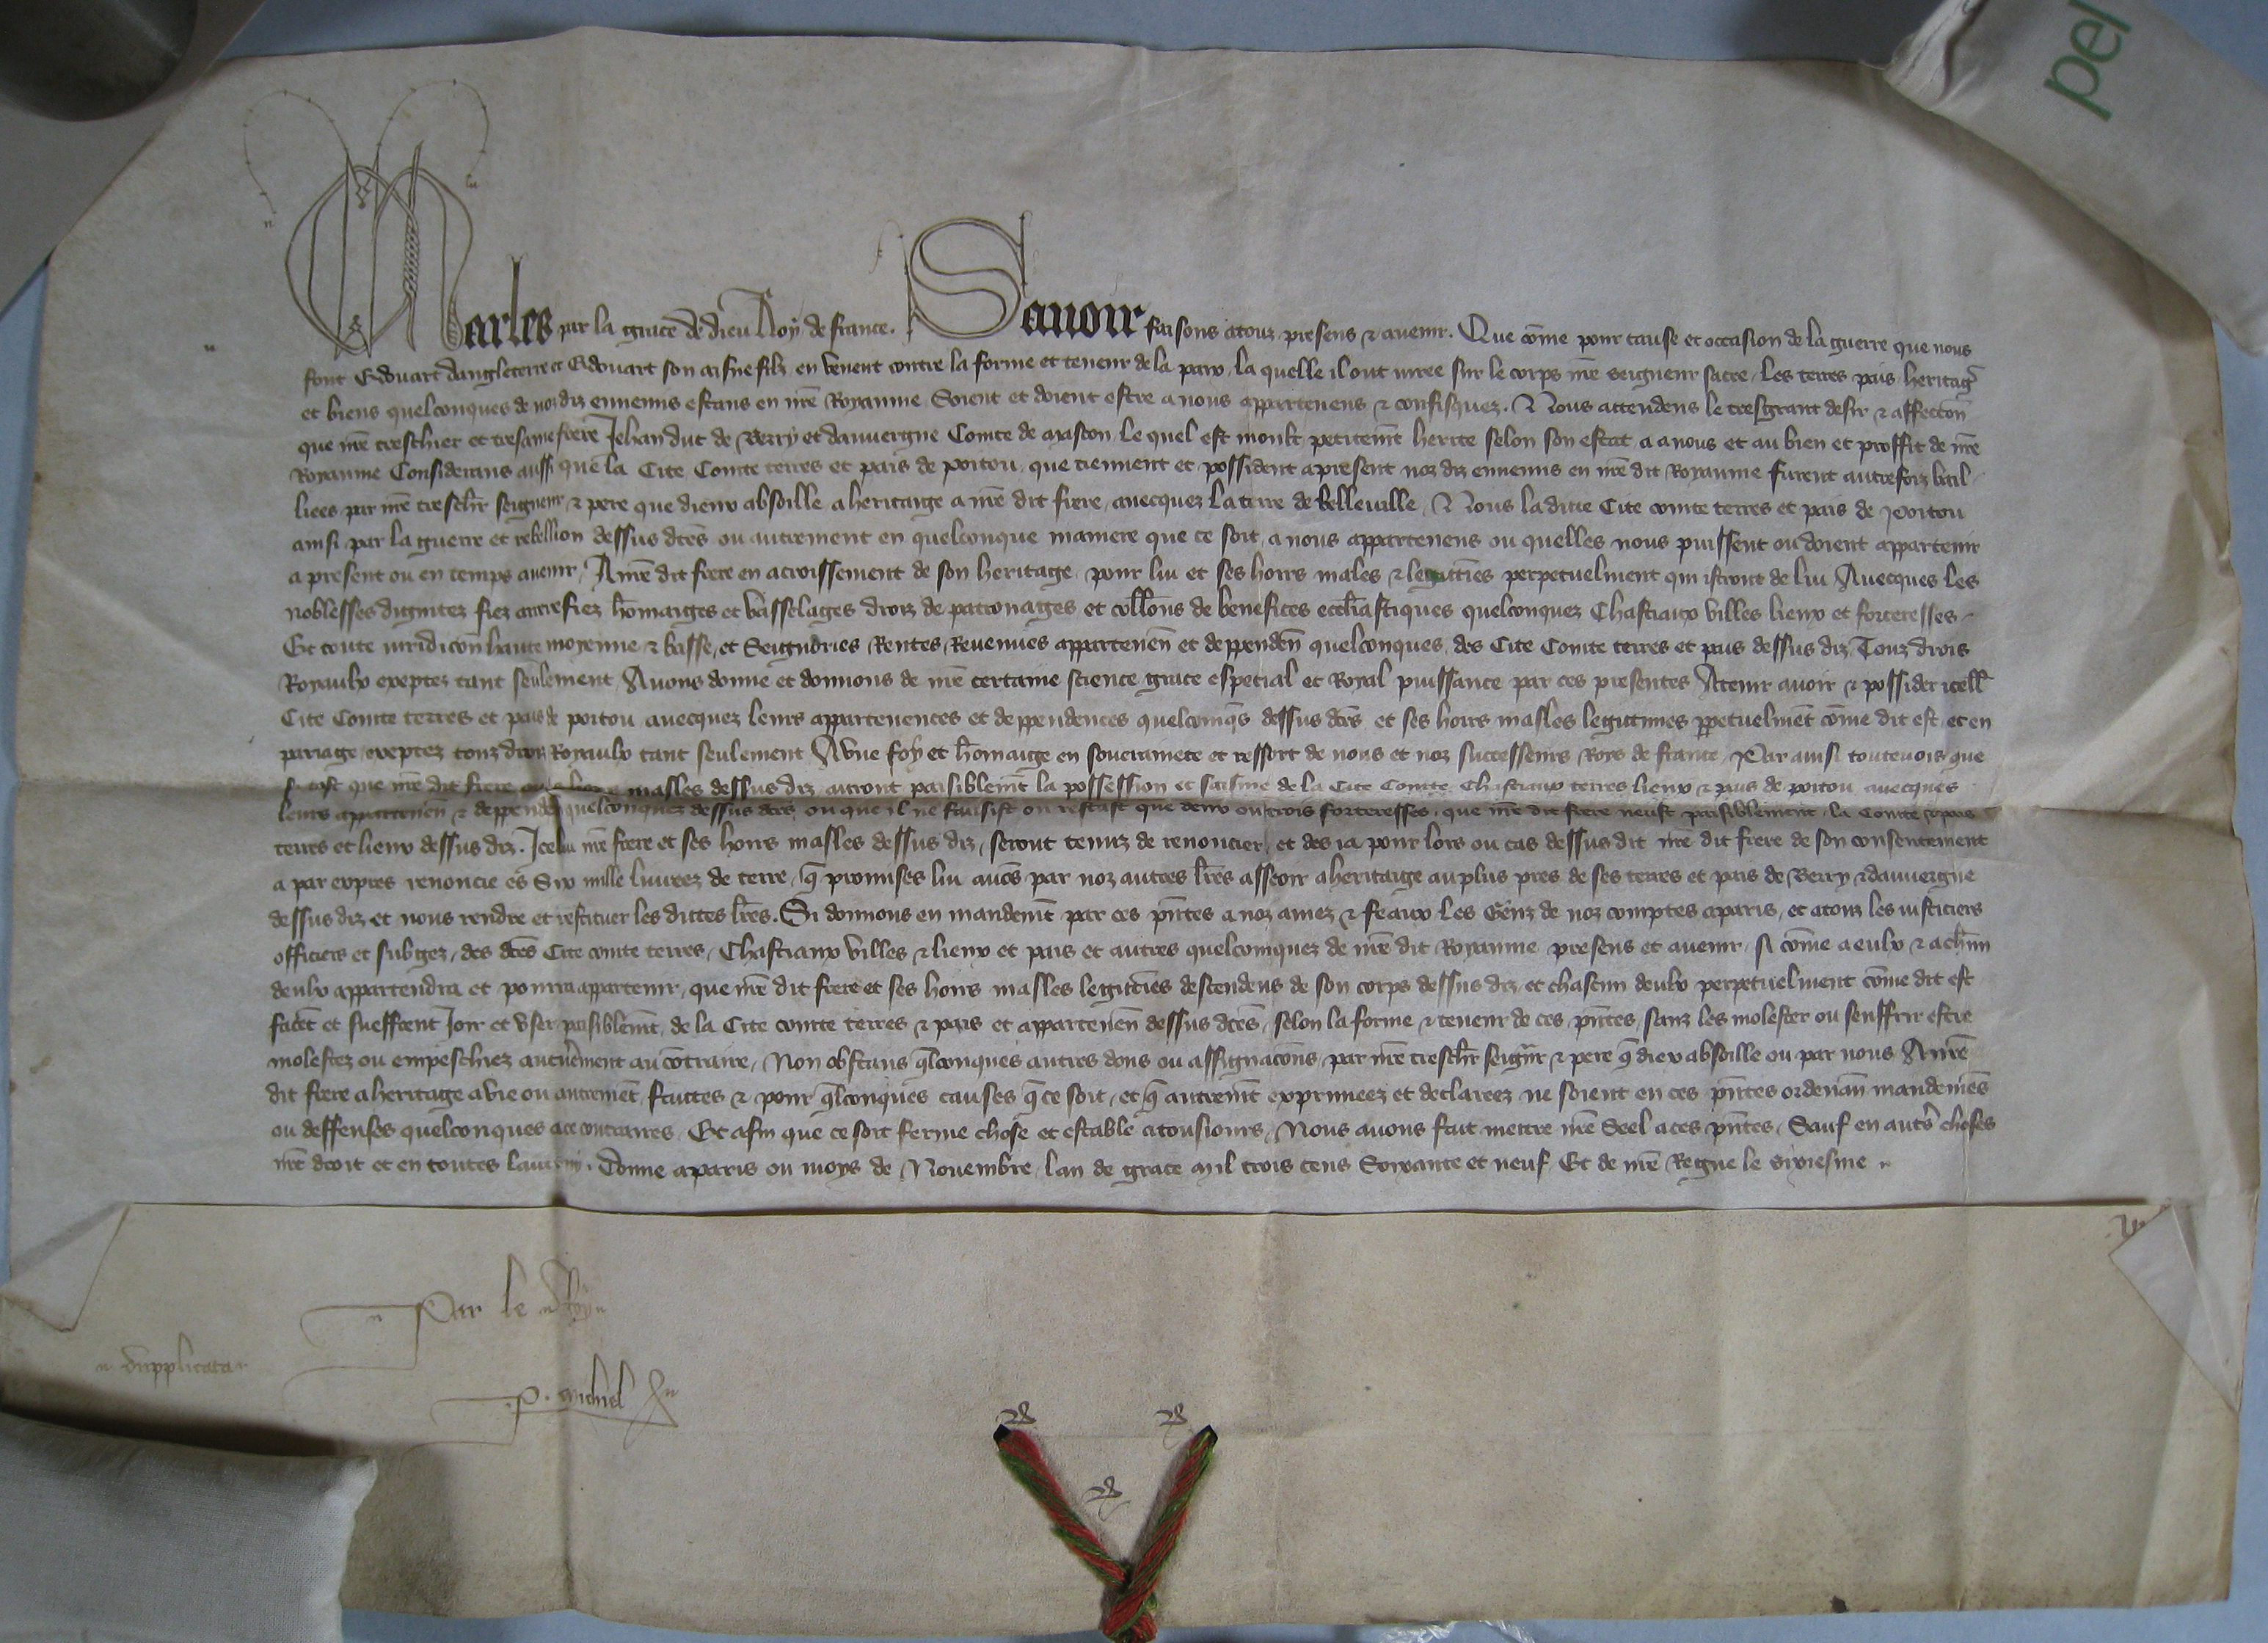 pel
Charles par la grace de dieu Roy de france. Sauoir faisons a touz presens & auenir. Que cōme pour cause et occasion de la guerre que nous
font Edouart dangleterre et Edouart son aisne filz en venent contre la forme et teneur de la paix la quelle il ont iuree sur le corps nr̄e seigneur sacre les terres pais heritag̃
et biens quelconques de noz diz ennemis estans en nr̄e Royaume Soient et doient estre a nous appartenens & confisquez. Nous attendens le tresgrant desir & affeccōn
que nr̄e treschier et tresame frere Jehan duc de Berry et dauuergne Conte de Mascon le quel est moult petitem̄t herite selon son estat a a nous et au bien et proffit de nr̄e
Royaume Considerans aussi que la Cite Conte terres et pais de poitou que tiennent et possident apresent noz diz ennemis en nr̄e dit Royaume furent autrefoiz bail
liees par nr̄e tresch̄r seigneur & pere que dieux absoille a heritaige a nr̄e dit frere auecquez la terre de belleuille Nous la dicte Cite conte terres et pais de Poitou
ainsi par la guerre et rebellion dessus dc̄es ou autrement en quelconque maniere que ce soit a nous appartenens ou quelles nous puissent ou doient appartenir
a present ou en temps auenir A nr̄e dit frere en acroissement de son heritage pour lui et ses hoirs males & legittīes perpetuelment qui istront de lui Auecques les
noblesses dignitez fiez arrerefiez hōmaiges et vasselages droiz de patronages et coll̄ons de benefices eccl̄iastiques quelconquez Chastiaux villes lieux et forteresses
Et toute iuridicōn haute moyenne & basse et Seignories Rentes Reuenues appartenen̄ et deppenden̄ quelconques des Cite Conte terres et pais dessus diz Touz drois
Royaulx exeptez tant seulement Auons donne et donnons de nr̄e certaine science grace especial et Royal puissance par ces presentes A tenir auoir & possider icell̄
Cite Conte terres et pais de poitou auecquez leurs appartenences et deppendences quelconq̄s dessus dc̄es et ses hoirs masles legitimes pp̄etuelmēt cōme dit est et en
pariage exeptez touz droiz Royaulx tant seulement A vne foy et hōmaige en souerainete et ressort de nous et noz successeurs Roys de france Par ainsi touteuois que
si tost que nr̄e dit frere masles dessus diz auront paisiblem̄t la possession et saisine de la Cite Conte Chastiaux terres lieux & pais de poitou auecques
leurs appartenen̄ & deppenden̄ quelconquez dessus dc̄es ou que il ne fausist ou restast que deux ou trois forteresses que nr̄e dit frere neust paisiblement la Conte pais
terres et lieux dessus diz. Icelui nr̄e frere et ses hoirs masles dessus diz seront tenuz de renoncier et des ia pour lors ou cas dessus dit nr̄e dit frere de son consentement
a par expres renoncie es Six mille liurees de terre q̄ promises lui auōs par noz autres lr̄es asseoir a heritaige au plus pres de ses terres et pais de Berry & dauuergne
dessus diz et nous rendre et restituer les dittes lr̄es. Si donnons en mandem̄t par ces pn̄tes a noz amez & feaux les Genz de noz comptes a paris et a touz les iusticiers
officiers et subgez des dc̄es Cite conte terres Chastiaux villes & lieux et pais et autres quelconquez de nr̄e dit Royaume presens et auenir si cōme a eulx & a ch̄un
deulx appartendra et pourra appartenir que nr̄e dit frere et ses hoirs masles legittīes descendens de son corps dessus diz et chascun deulx perpetuelment cōme dit est
facēt et sueffrent Joir et vser paisiblem̄t de la Cite conte terres & pais et appartenen̄ dessus dc̄es selon la forme & teneur de ces pn̄tes sanz les molester ou souffrir estre
molestez ou empeschiez aucun̄ement au contraire Non obstans q̄lconques autres dons ou assignacōns par nr̄e tresch̄r seign̄r & pere q̄ diex absoille ou par nous A nr̄e
dit frere a heritage a vie ou autremēt faittes & pour q̄lconques causes q̄ ce soit et q̄ autrem̄t exprimeez et declareez ne soient en ces pn̄tes ordenan̄ mandemēs
ou deffenses quelconques a ce contraires Et afin que ce soit ferme chose et estable a tousiours Nous auons fait mettre nr̄e Seel a ces pn̄tes Sauf en autr̄es choses
nr̄e droit et en toutes lautruy. Donne a paris ou moys de Nouembre lan de grace mil trois cens Soixante et neuf Et de nr̄e Regne le sixiesme
Par le Roy
dupplicata
P. Michel